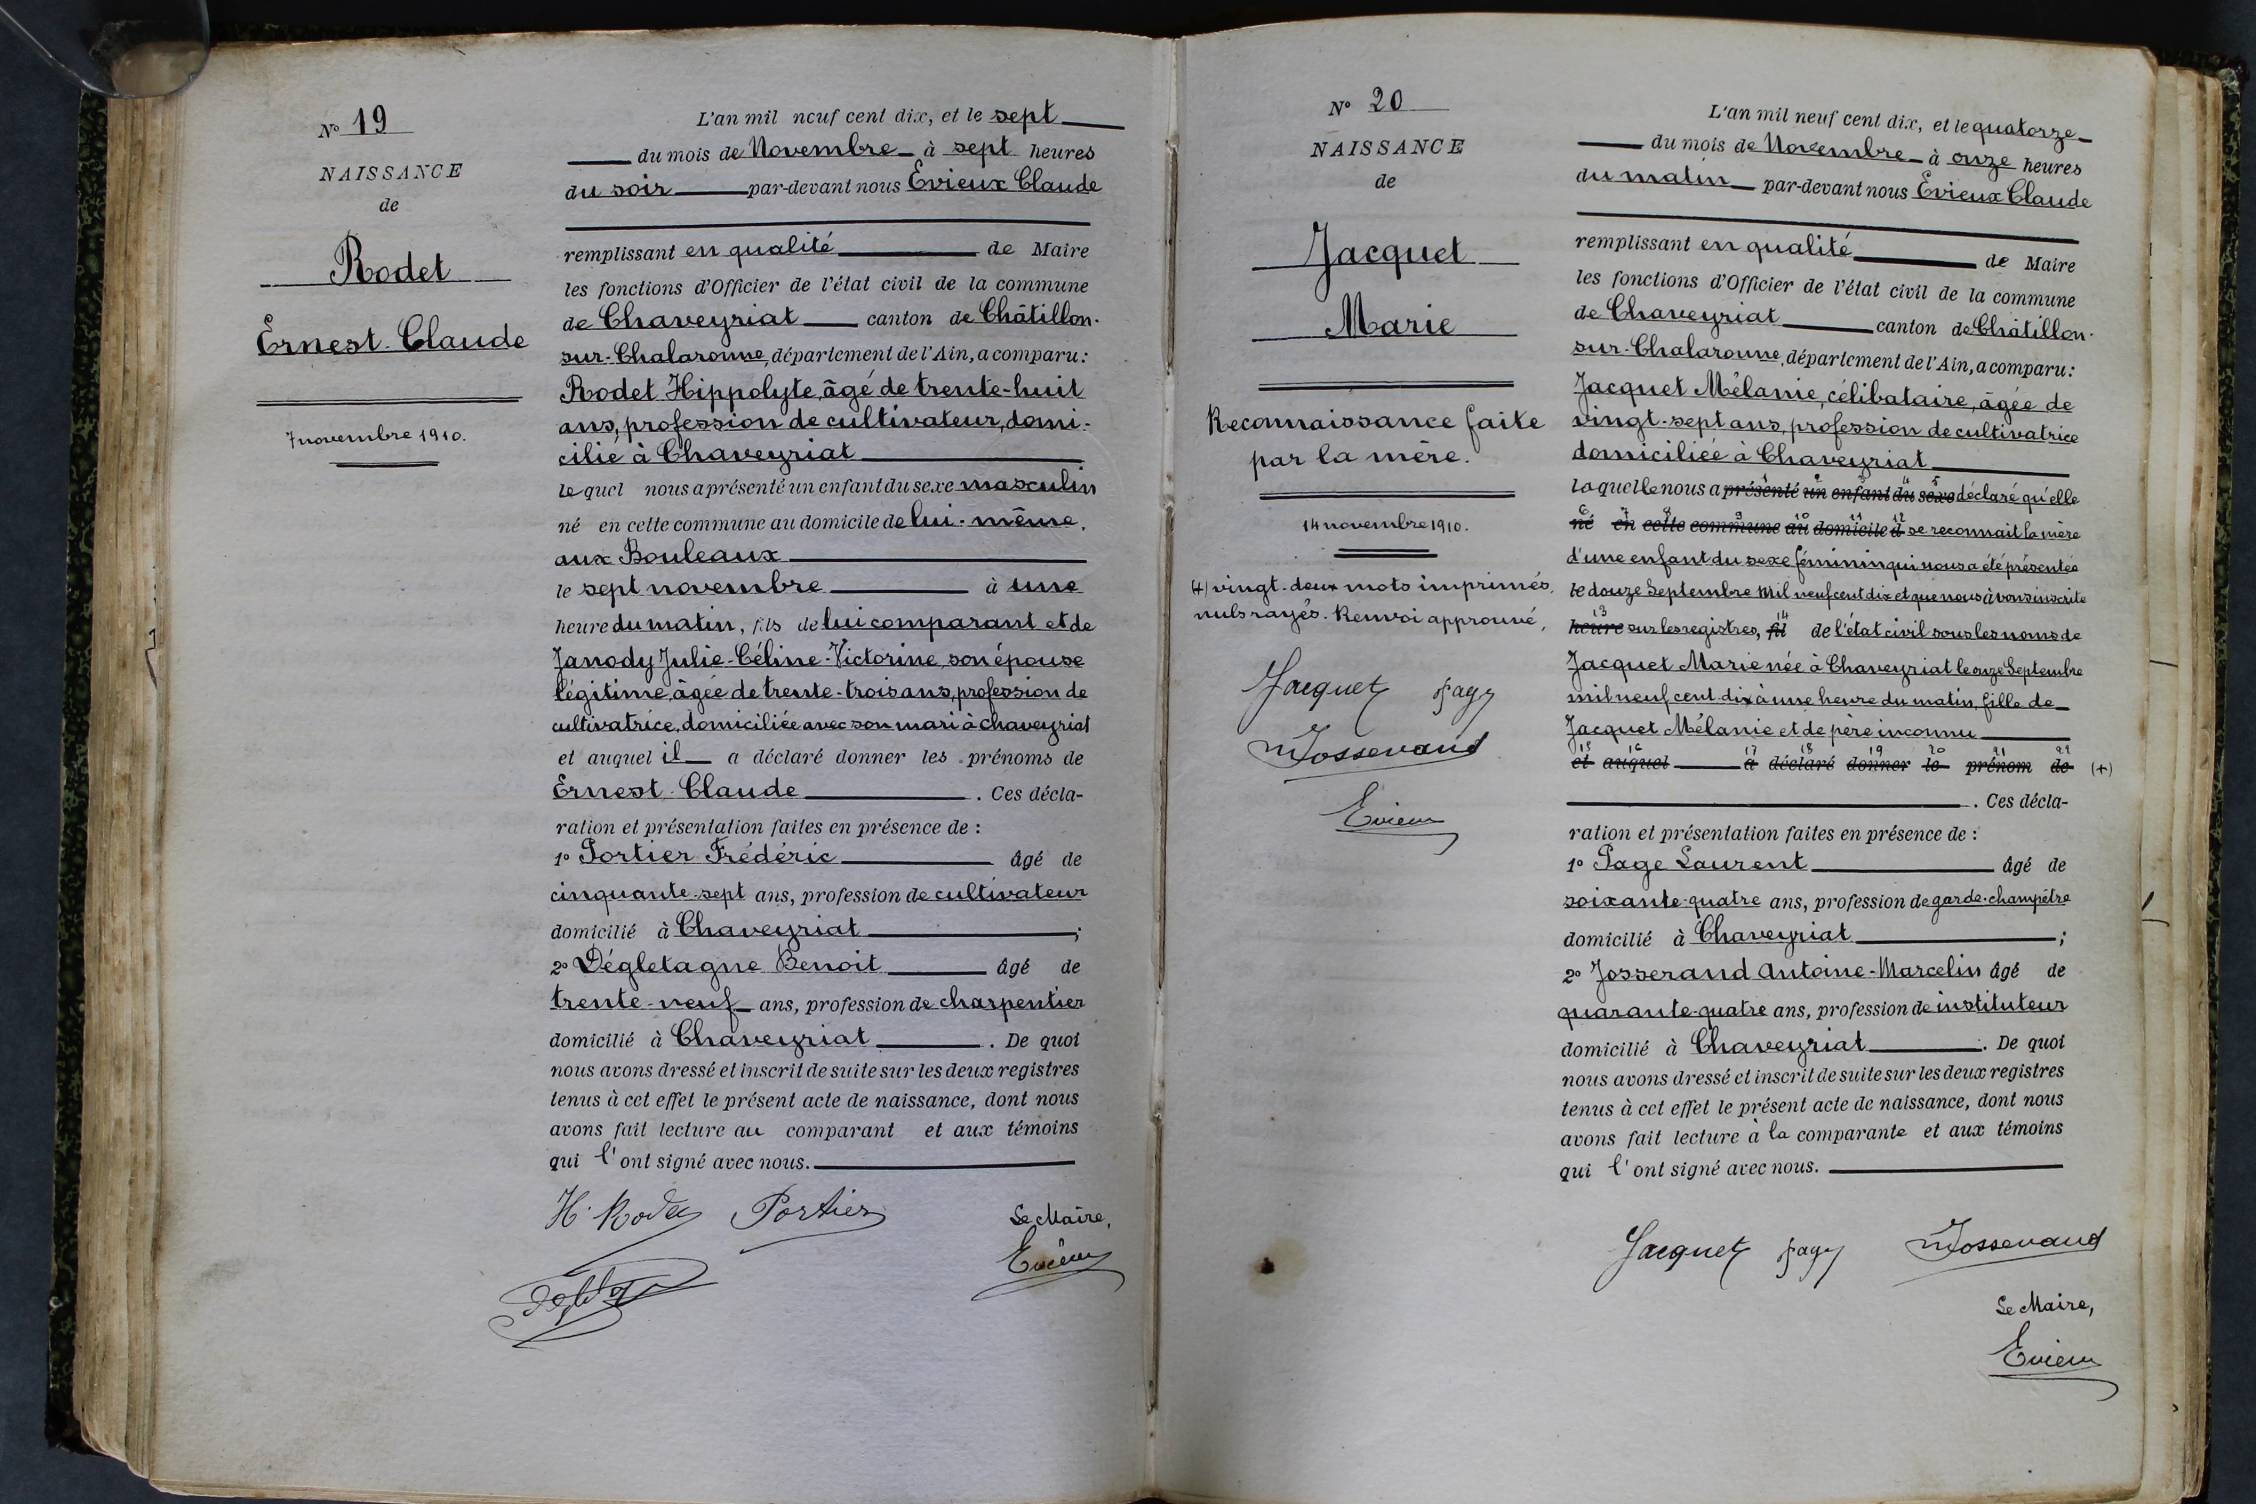 N° 19
NAISSANCE
de
Rodet
Ernest-Claude
7 novembre 1910.
L'an mil neuf cent dix, et le sept
du mois de Novembre à sept heures
du soir par-devant nous Evieux Claude
remplissant en qualité de Maire
les fonctions d'Officier de l'état civil de la commune
de Chaveyriat canton de Châtillon-
sur-Chalaronne, département de l'Ain, a comparu :
Rodet Hippolyte, âgé de trente-huit
ans, profession de cultivateur, domi-
cilié à Chaveyriat
lequel nous a présenté un enfant du sexe masculin
né en cette commune au domicile de lui-même,
aux Bouleaux
le sept novembre à une
heure du matin, fils de lui comparant et de
Janody Julie-Céline-Victorine, son épouse
légitime, âgée de trente-trois ans, profession de
cultivatrice, domiciliée avec son mari à Chaveyriat
et auquel il a déclaré donner les prénoms de
Ernest-Claude . Ces décla-
ration et présentation faites en présence de :
1° Portier Frédéric âgé de
cinquante-sept ans, profession de cultivateur
domicilié à Chaveyriat ;
2° Dégletagne Benoit âgé de
trente-neuf ans, profession de charpentier
domicilié à Chaveyriat . De quoi
nous avons dressé et inscrit de suite sur les deux registres
tenus à cet effet le présent acte de naissance, dont nous
avons fait lecture au comparant et aux témoins
qui l'ont signé avec nous.
H. Rodet Portier
Le Maire,
Evieux
N° 20
NAISSANCE
de
Jacquet
Marie
Reconnaissance faite
par la mère.
14 novembre 1910.
(+) vingt-deux mots imprimés,
nuls rayés. Renvoi approuvé,
Jacquet Page
Josserand
Evieux
L'an mil neuf cent dix, et le quatorze
du mois de Novembre à onze heures
du matin par-devant nous Evieux Claude
remplissant en qualité de Maire
les fonctions d'Officier de l'état civil de la commune
de Chaveyriat canton de Châtillon-
sur-Chalaronne, département de l'Ain, a comparu :
Jacquet Mélanie, célibataire, âgée de
vingt-sept ans, profession de cultivatrice
domiciliée à Chaveyriat
laquelle nous a présenté un enfant du sexe déclaré qu'elle
né en cette commune au domicile d se reconnait la mère
d'une enfant du sexe féminin qui nous a été présentée
le douze Septembre mil neuf cent dix et que nous avons inscrite
heure sur les registres, fil de l'état civil sous les noms de
Jacquet Marie née à Chaveyriat le onze Septembre
mil neuf cent dix à une heure du matin, fille de
Jacquet Mélanie et de père inconnu
15 16 17 18 19 20 21 22
et auquel a déclaré donner le prénom de (+)
. Ces décla-
ration et présentation faites en présence de :
1° Page Laurent âgé de
soixante-quatre ans, profession de garde-champêtre
domicilié à Chaveyriat ;
2° Josserand Antoine-Marcelin âgé de
quarante-quatre ans, profession de instituteur
domicilié à Chaveyriat . De quoi
nous avons dressé et inscrit de suite sur les deux registres
tenus à cet effet le présent acte de naissance, dont nous
avons fait lecture à la comparante et aux témoins
qui l'ont signé avec nous.
Jacquet Page Josserand
Le Maire,
Evieux